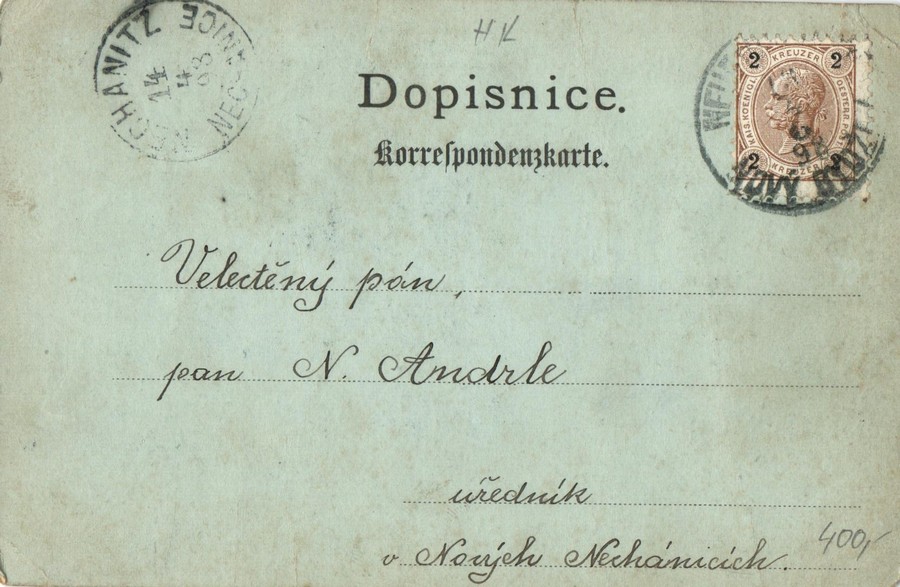 HK
NECHANITZ NECHANICE
14
4
98
Dopisnice.
Korrespondenzkarte.
2 KREUZER 2
KAIS. KOENIGL. OESTERR.
2 KREUZER 2
98
NOVÝ
Velectěný pán,
pan N. Andrle
úředník
v Nových Nechánicích.
400,-